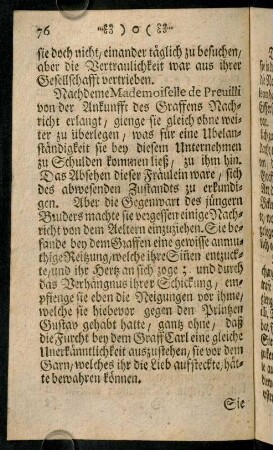 76 )o(
sie doch nicht, einander täglich zu besuchen,
aber die Vertraulichkeit war aus ihrer
Gesellschafft vertrieben.
Nachdeme Mademoiselle de Preuilli
von der Ankunfft des Graffens Nach-
richt erlangt, gienge sie gleich ohne wei-
ter zu überlegen, was für eine Ubelan-
ständigkeit sie bey diesem Unternehmen
zu Schulden kommen ließ, zu ihm hin.
Das Absehen dieser Fräulein ware, sich
des abwesenden Zustands zu erkundi-
gen. Aber die Gegenwart des jüngern
Bruders machte sie vergessen einige Nach-
richt von dem Aeltern einzuziehen. Sie be-
fande bey dem Graffen eine gewisse anmu-
thige Reitzung, welche ihre Siñen entzuck-
te, und ihr Hertz an sich zoge; und durch
das Verhängnus ihrer Schickung, em-
pfienge sie eben die Neigungen vor ihme,
welche sie hiebevor gegen den Printzen
Gustav gehabt hatte, gantz ohne, daß
die Furcht bey dem Graff Carl eine gleiche
Unerkänntlichkeit auszustehen, sie vor dem
Garn, welches ihr die Lieb aufsteckte, hät-
te bewahren können.
Sie